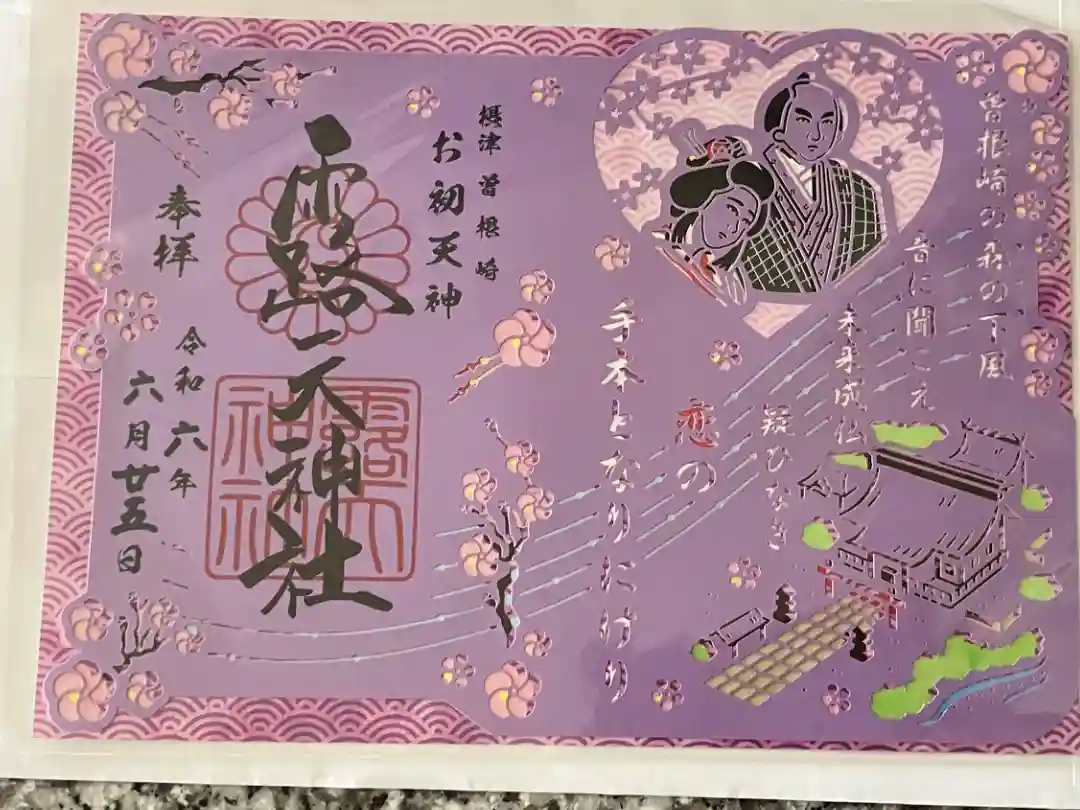 曽根崎の森の下風
音に聞こえ
未来成仏
疑ひなき
恋の
手本となりにけり
摂津 曽根崎
お初天神
露天神社
露天
神社
奉拝
令和六年
六月廿五日